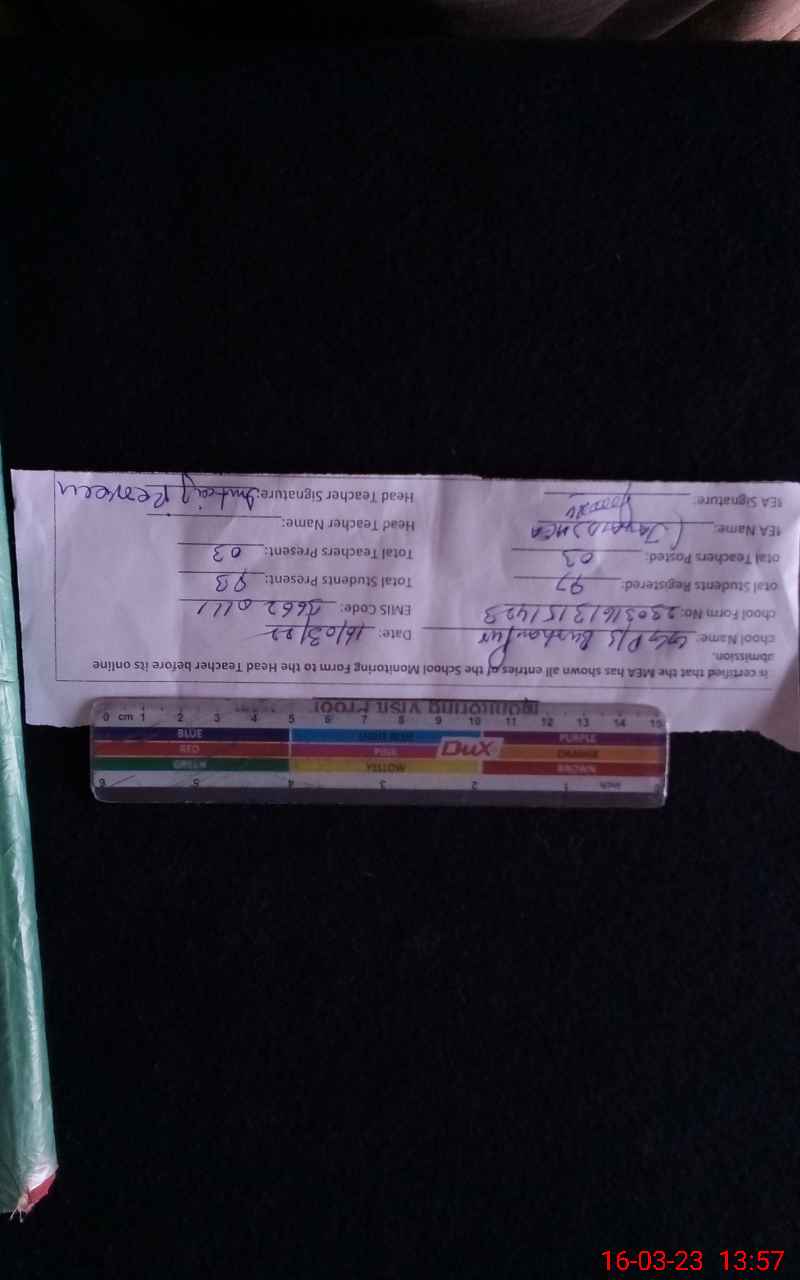 Monitoring Visit Proof
is certified that the MEA has shown all entries of the School Monitoring Form to the Head Teacher before its online
ubmission.
chool Name: Date: 16/03/23
chool Form No: 230316131511423 EMIS Code: 36620111
otal Students Registered: 97 Total Students Present: 93
otal Teachers Posted: 03 Total Teachers Present: 03
MEA Name: (Javaid) MEA Head Teacher Name:
MEA Signature: Head Teacher Signature: Perveen
0 cm 1 2 3 4 5 6 7 8 9 10 11 12 13 14 15
BLUE LIGHT BLUE PURPLE
RED PINK DUX ORANGE
GREEN YELLOW BROWN
6 5 4 3 2 1 Inch
16-03-23 13:57